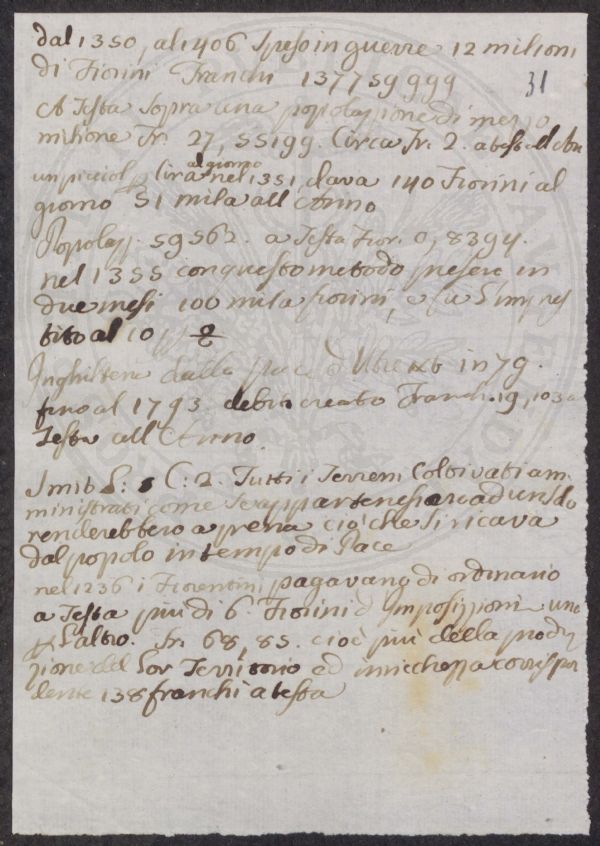 dal 1350, al 1406 Speso in guerre 12 milioni
di Fiorini Franchi 137759999
31
A Testa Sopra una popolazione di mezzo
milione Fr. 27, 55199. Circa Fr. 2. a testa all An
un picciol p lira al giorno nel 1351 dava 140 Fiorini al
giorno 51 mila all Anno
Popolaz. 59562. a Testa Fior. 0,8394.
nel 1355 con questo metodo prese in
due mesi 100 mila fiorini, e fu Limpres
tito al 10 p
Inghilterra dalla pace d Utrext in 79.
fino al 1793 debito creato Franchi 19,103 a
Testa all Anno
Smit L: C: 2. Tutti i Terreni Coltivati am
ministrati come Se appartenessero ad un solo
renderebbero a pena cio che Si ricava
dal popolo in tempo di Pace
nel 1236 i Fiorentini pagavano di ordinario
a Testa piu di 6 Fiorini d Imposizzioni uno
p Laltro. Fr. 68,85. cioè più della produ
zione del Lor Territorio ed ricchezza corrispon
dente 138 franchi a testa